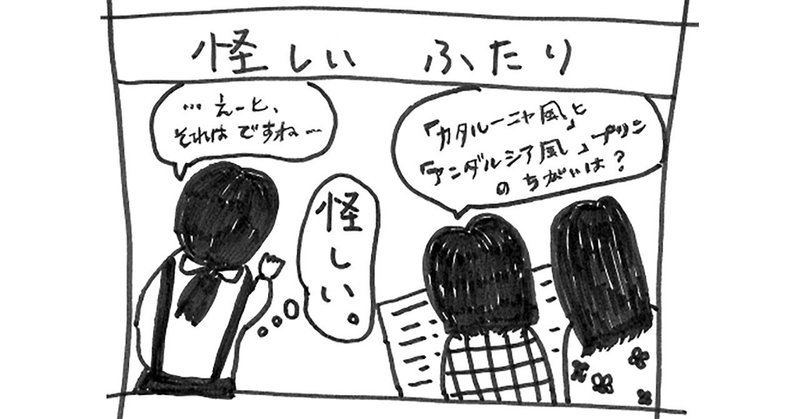 怪しい ふたり
…えーと、
それはですね…
怪しい。
「カタルーニャ風」と
「アンダルシア風」プリン
のちがいは？